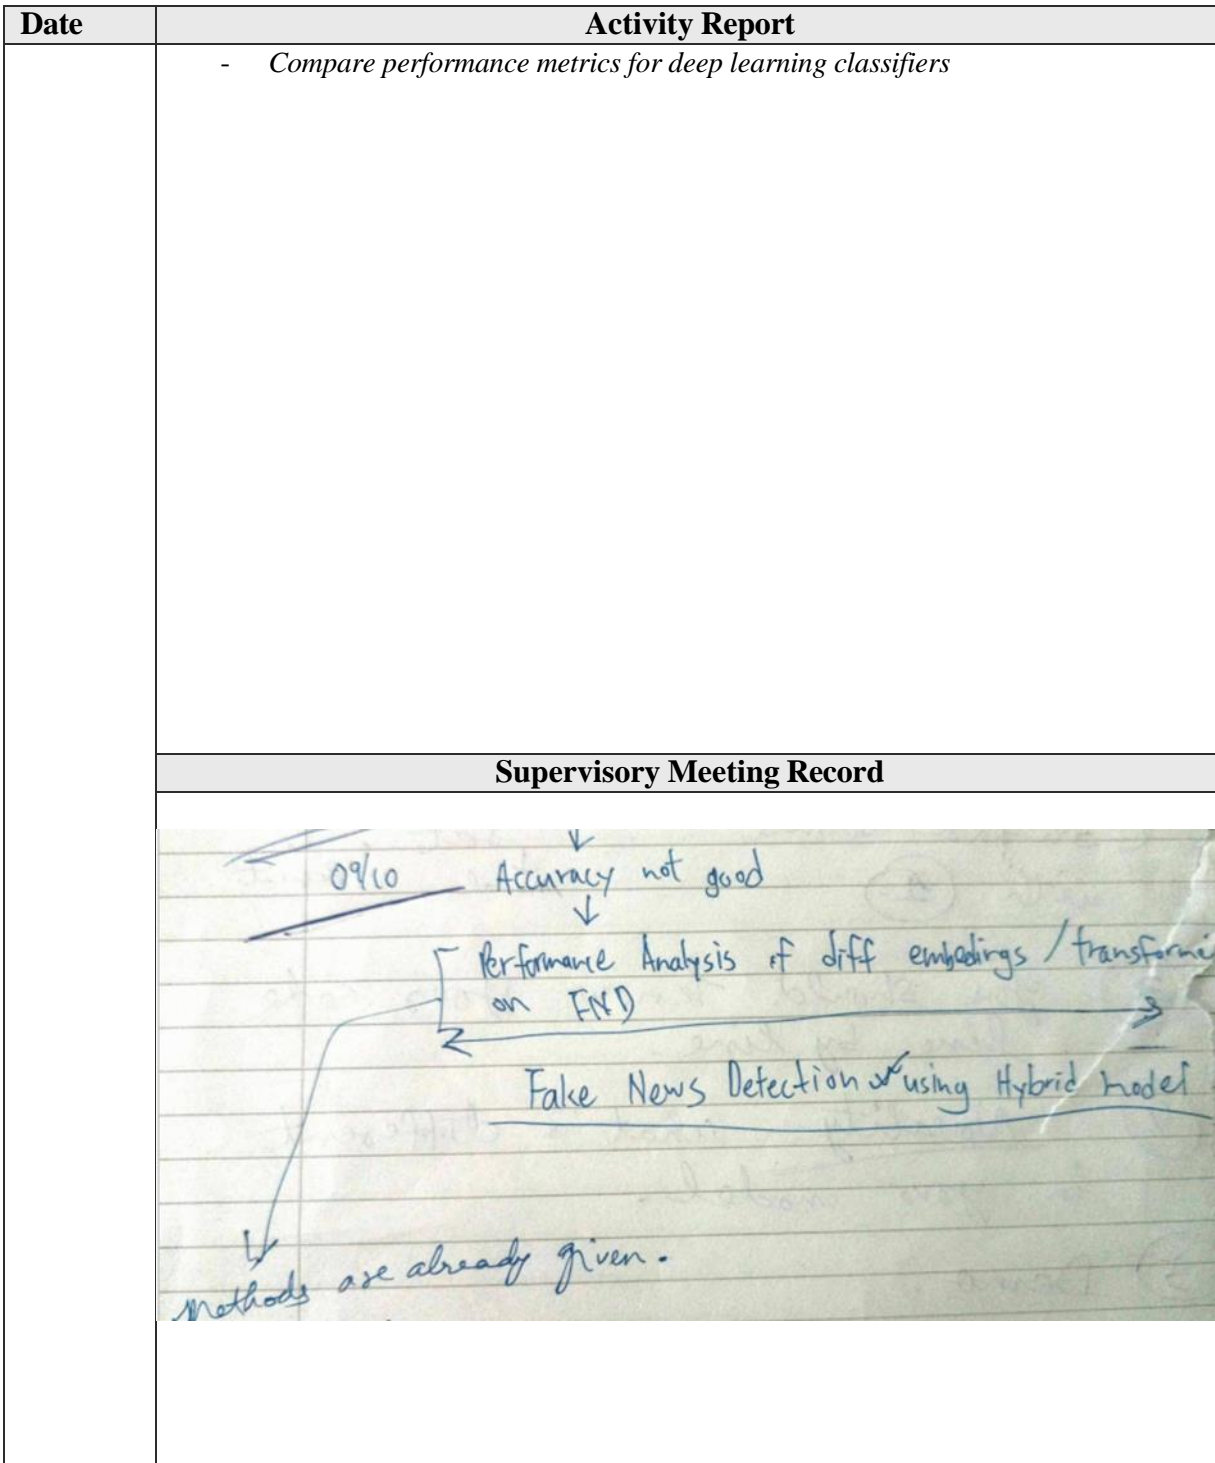 Date Activity Report
- Compare performance metrics for deep learning classifiers
Supervisory Meeting Record
09/10 Accuracy not good
Performance Analysis of diff embedings / transforme
on FND
Fake News Detection using Hybrid model
methods are already given.